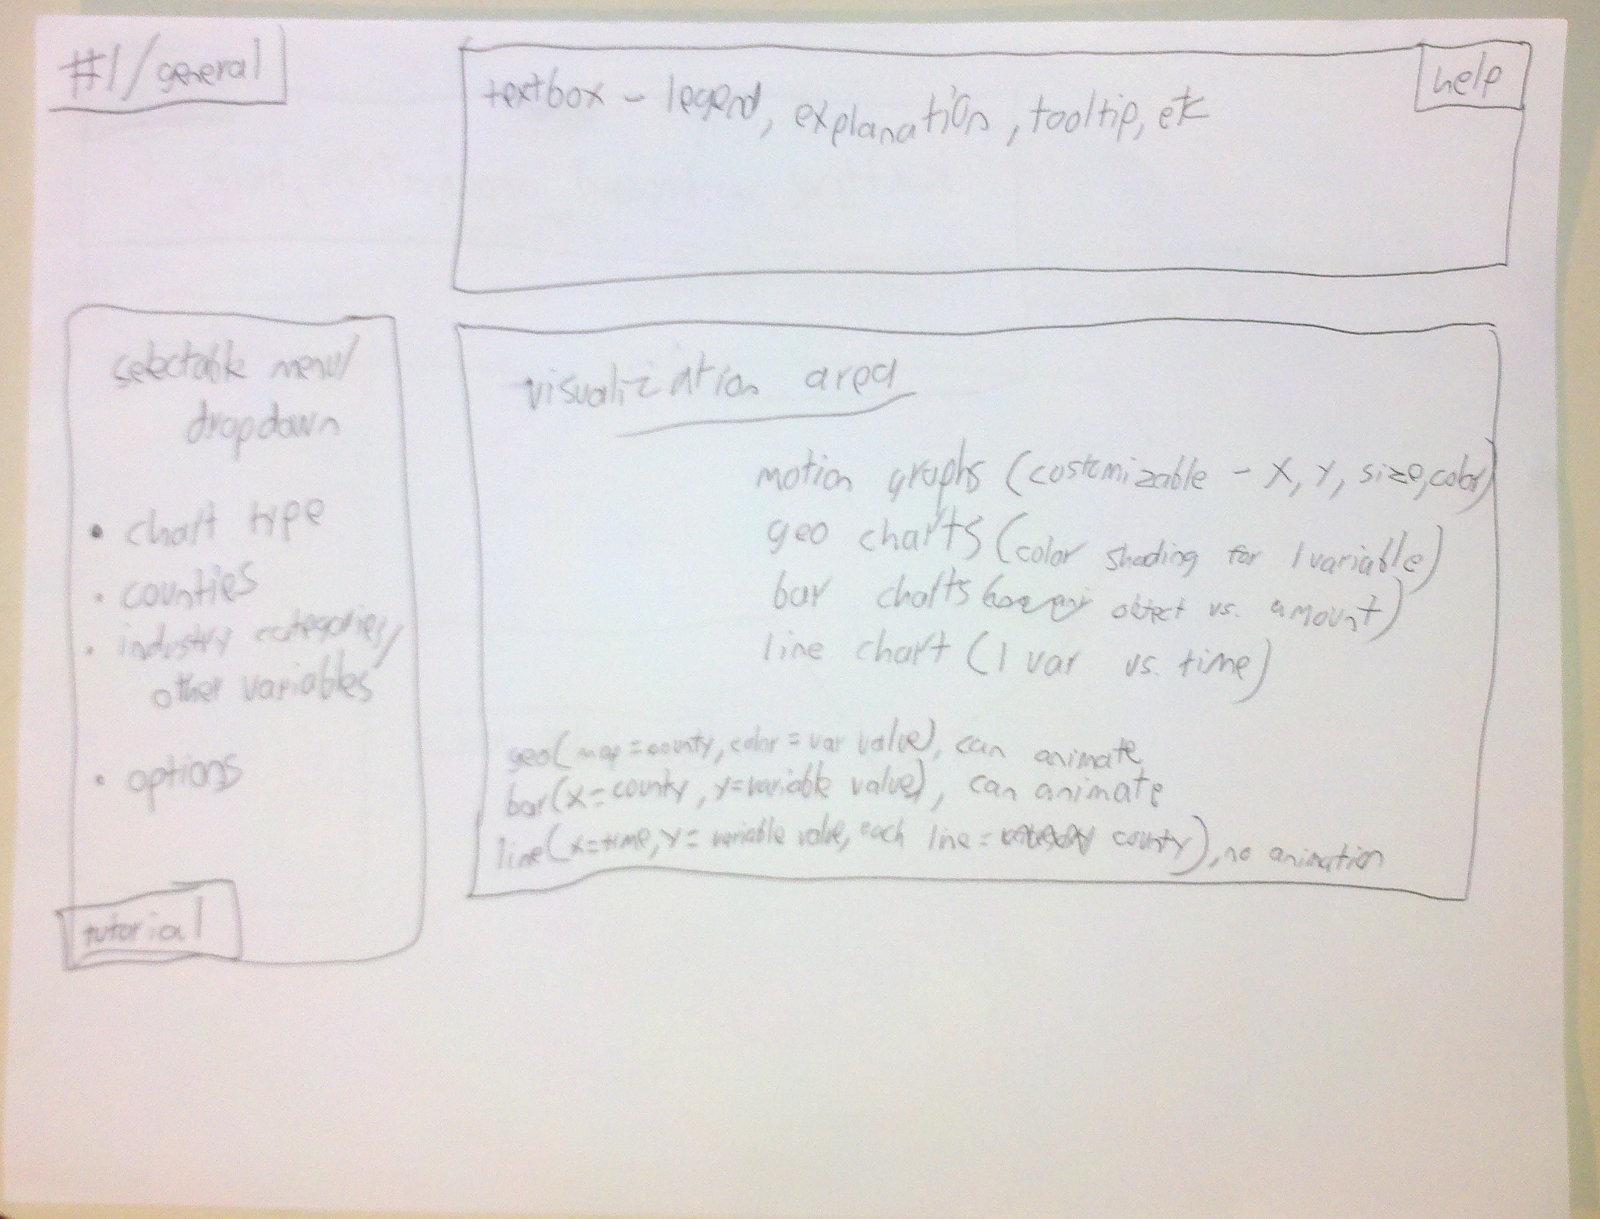 #1/general
help
textbox - legend, explanation, tooltip, etc
selectable menu/
dropdown
• chart type
• counties
• industry categories/
other variables
• options
tutorial
visualization area
motion graphs (costemizable - X, Y, size, color)
geo charts (color shading for 1 variable)
bar charts object vs. amount)
line chart (1 var vs. time)
geo(map=county, color = var value), can animate
bar(x=county, y=variable value), can animate
line(x=time, y= variable value, each line = county), no animation